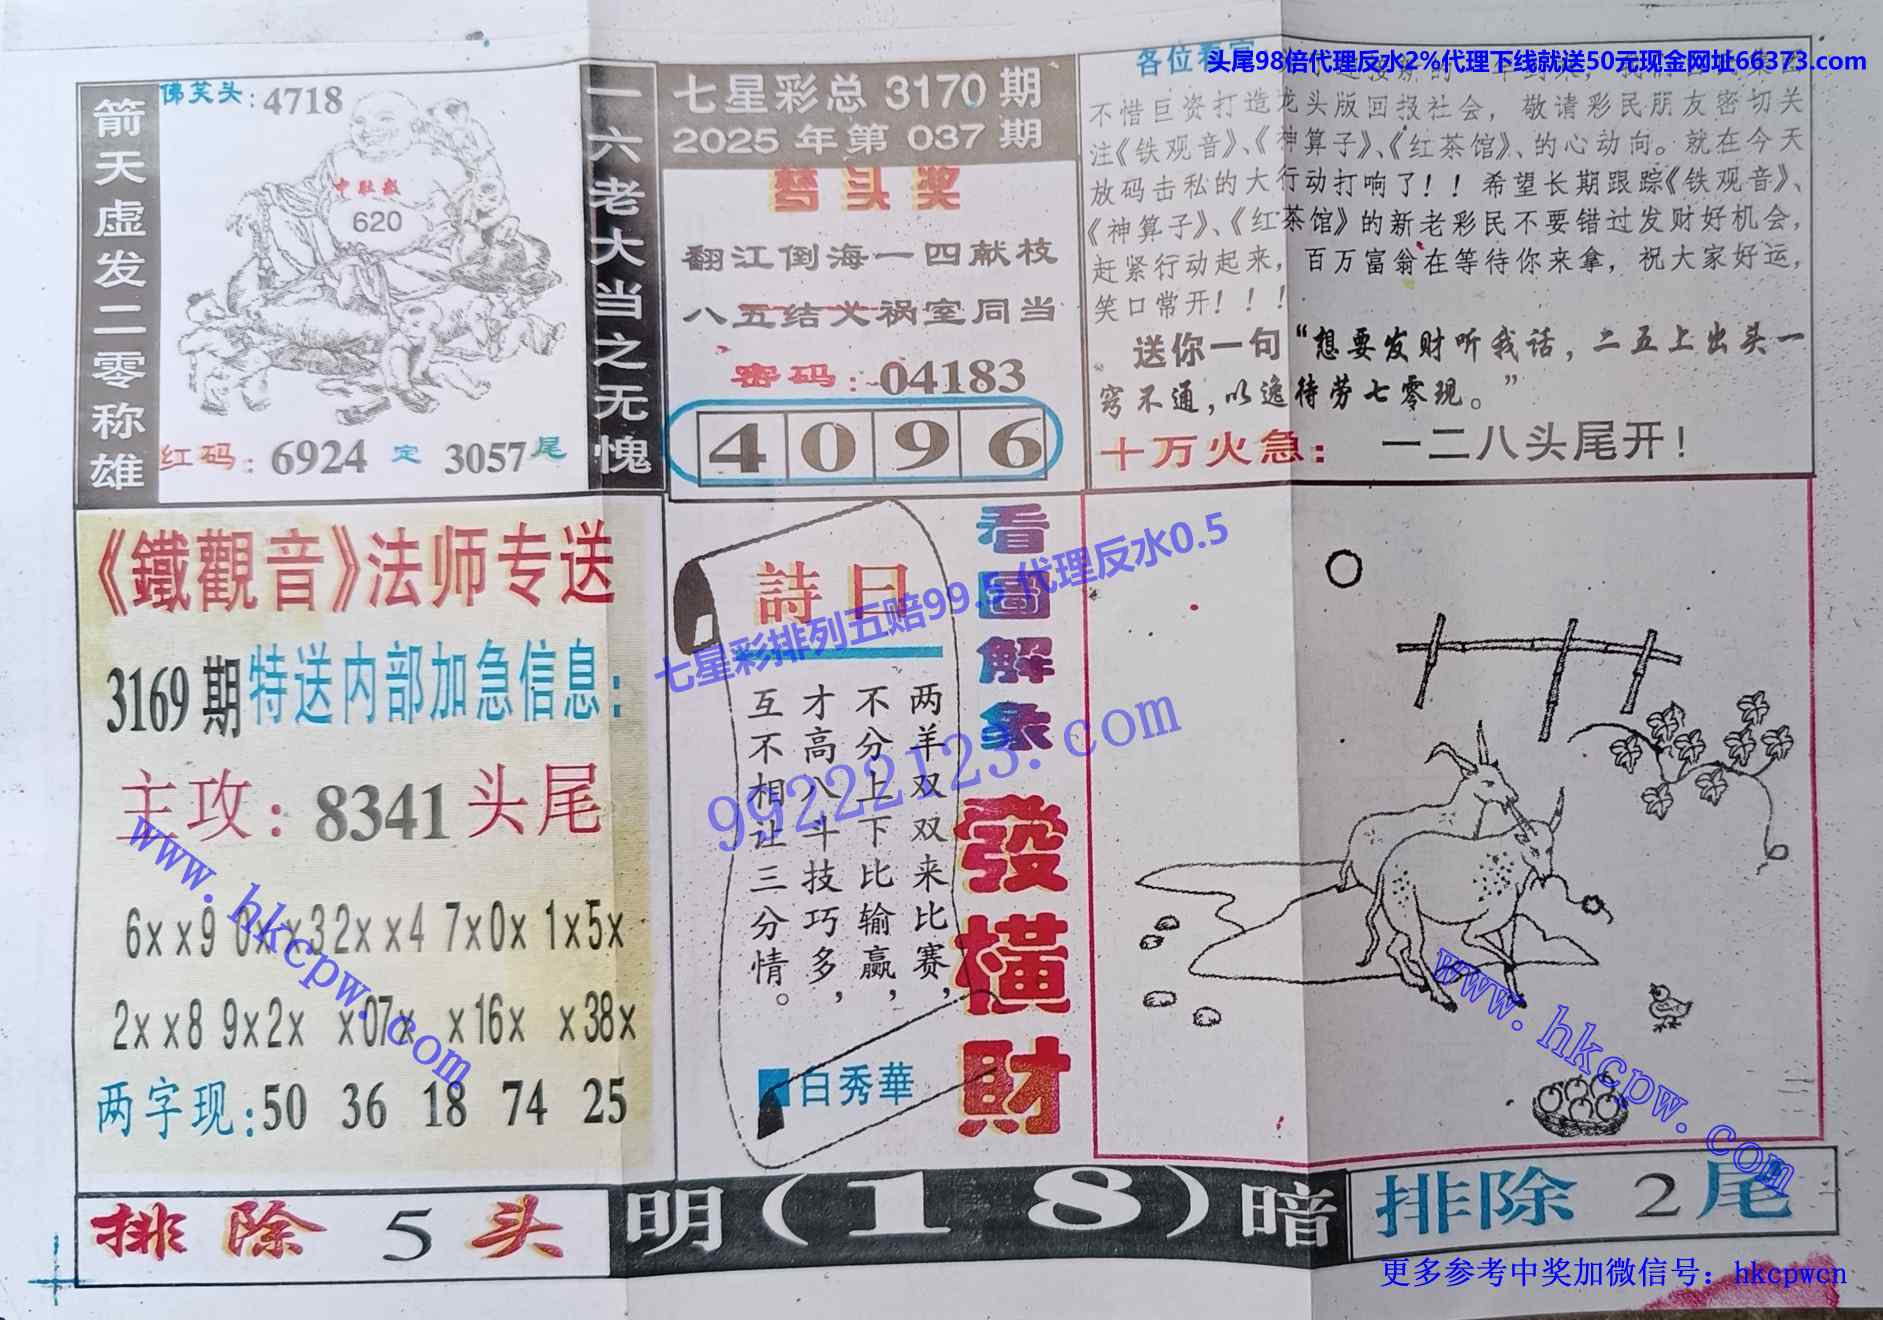 头尾98倍代理反水2%代理下线就送50元现金网址66373.com
箭天虚发二零称雄
佛笑头：4718
中肚数
620
红码：6924 定 3057尾
一六老大当之无愧
七星彩总 3170 期
2025 年第 037 期
梦头奖
翻江倒海一四献枝
八五结义祸室同当
密码：04183
4096
各位看官
不惜巨资打造龙头版回报社会，敬请彩民朋友密切关
注《铁观音》、《神算子》、《红茶馆》、的心动向。就在今天
放码击私的大行动打响了！！希望长期跟踪《铁观音》、
《神算子》、《红茶馆》的新老彩民不要错过发财好机会，
赶紧行动起来，百万富翁在等待你来拿，祝大家好运，
笑口常开！！！
送你一句“想要发财听我话，二五上出头一
窍不通，以逸待劳七零现。”
十万火急：一二八头尾开！
《鐵觀音》法师专送
3169期特送内部加急信息：
主攻：8341头尾
6xx9 0xx3 2xx4 7x0x 1x5x
2xx8 9x2x x07x x16x x38x
两字现：50 36 18 74 25
詩曰
两羊双双来比赛，
不分上下比输赢，
才高八斗技巧多，
互不相让三分情。
白秀華
看圖解象
發橫財
七星彩排列五赔99.5 代理反水0.5
99222123.com
www.hkcpw.com
www.hkcpw.com
排除 5 头
明(18)暗
排除 2尾
更多参考中奖加微信号：hkcpwcn